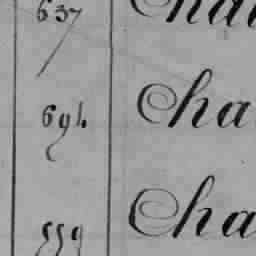 637 Cha
694 Cha
559 Cha